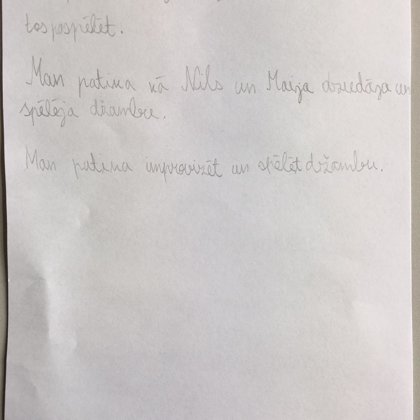 tos pospēlēt.
Man patika kā Nils un Maija dziedāja un
spēlēja džambu.
Man patika improvizēt un spēlēt džambu.